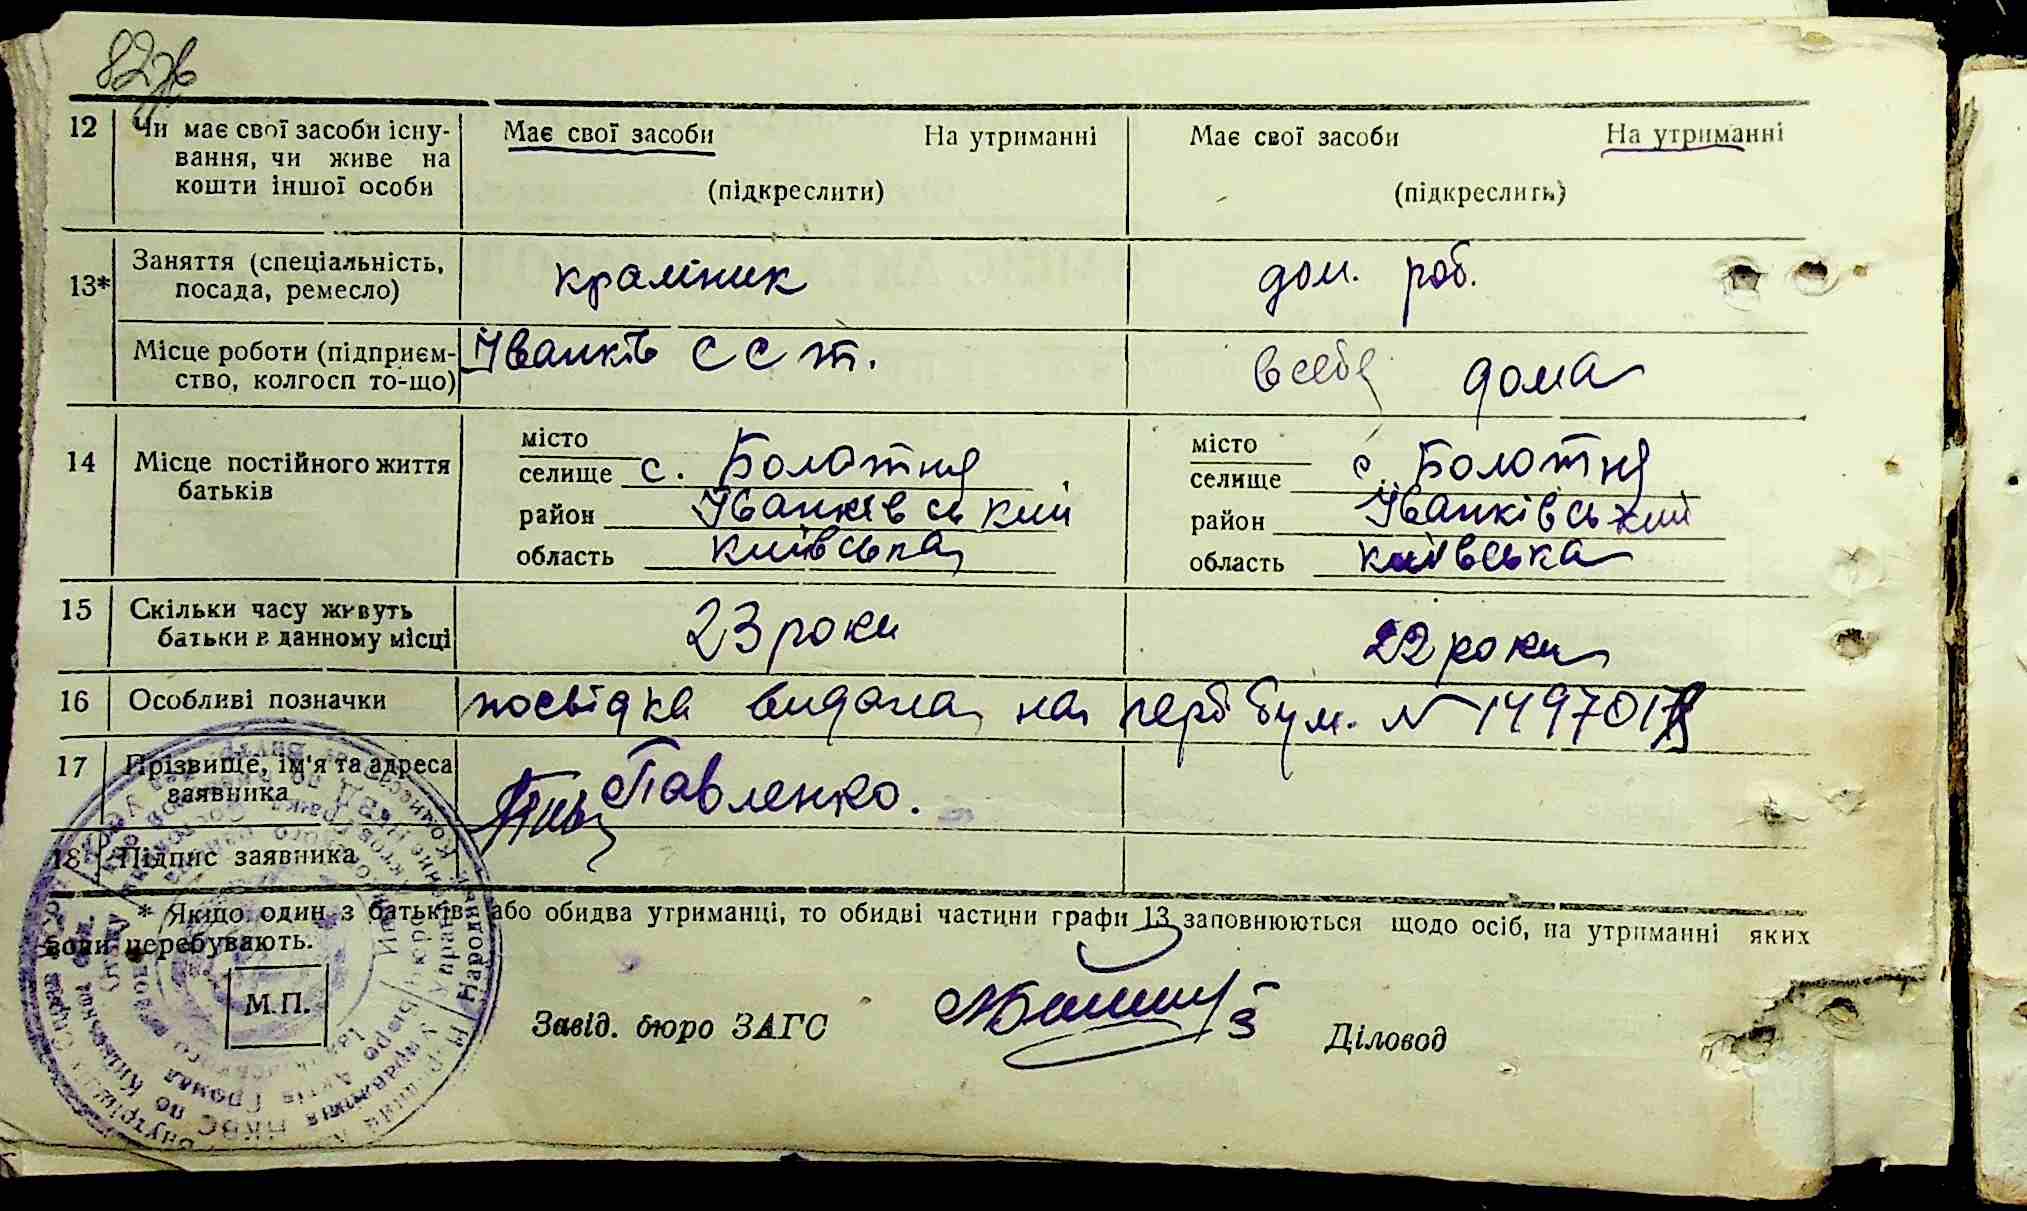 82
12 Чи має свої засоби існу- Має свої засоби На утриманні Має свої засоби На утриманні
вання, чи живе на
кошти іншої особи (підкреслити) (підкреслить)
13* Заняття (спеціальність, крамник дом. роб.
посада, ремесло)
Місце роботи (підприєм- Іванків ССТ. в себе дома
ство, колгосп то-що)
14 Місце постійного життя місто місто
батьків селище с. Болотня селище с. Болотня
район Іванківський район Іванківський
область київська область київська
15 Скільки часу живуть 23 роки 22 роки
батьки в данному місці
16 Особливі позначки посвідка видана на герб бум. № 149701
17 Прізвище, ім'я та адреса Павленко.
заявника
18 Підпис заявника
* Якщо один з батьків або обидва утриманці, то обидві частини графи 13 заповнюються щодо осіб, на утриманні яких
вони перебувають.
М.П.
Завід. бюро ЗАГС Діловод